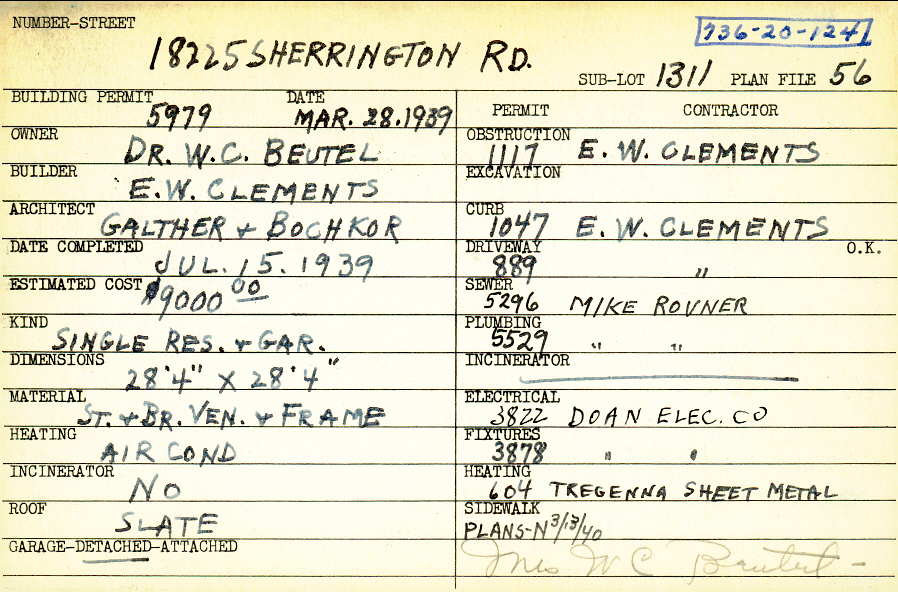 NUMBER-STREET
736-20-124
18225 SHERRINGTON RD.
SUB-LOT 1311 PLAN FILE 56
BUILDING PERMIT 5979 DATE MAR. 28. 1939
OWNER DR. W.C. BEUTEL
BUILDER E.W. CLEMENTS
ARCHITECT GALTHER & BOCHKOR
DATE COMPLETED JUL. 15. 1939
ESTIMATED COST $9000 00
KIND SINGLE RES. & GAR.
DIMENSIONS 28'4" X 28'4"
MATERIAL ST. & BR. VEN. & FRAME
HEATING AIR COND
INCINERATOR NO
ROOF SLATE
GARAGE-DETACHED-ATTACHED
PERMIT CONTRACTOR
OBSTRUCTION 1117 E. W. CLEMENTS
EXCAVATION
CURB 1047 E. W. CLEMENTS
DRIVEWAY 889 " O.K.
SEWER 5296 MIKE ROVNER
PLUMBING 5529 " "
INCINERATOR
ELECTRICAL 3822 DOAN ELEC. CO
FIXTURES 3878 " "
HEATING 604 TREGENNA SHEET METAL
SIDEWALK
PLANS-N 3/13/40
Mrs W C